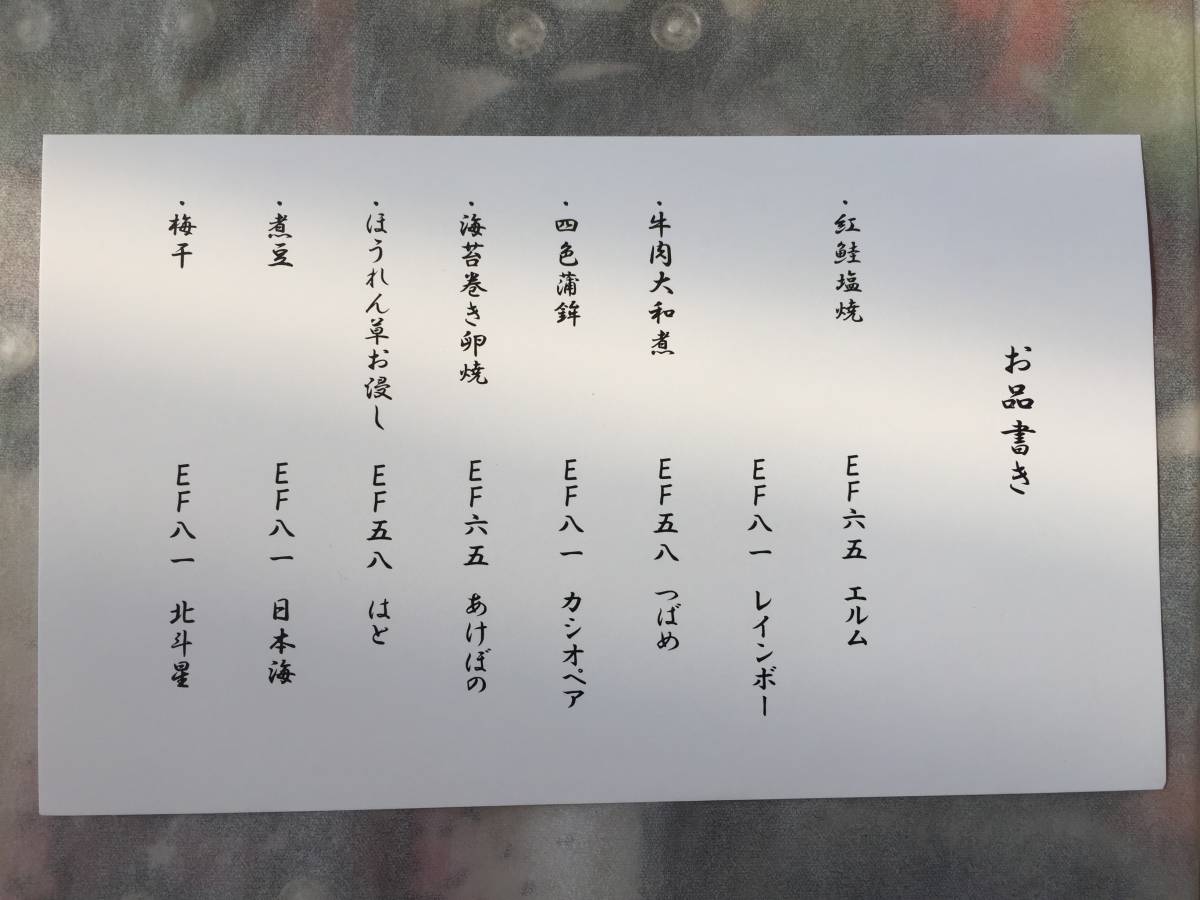 お品書き
・紅鮭塩焼　ＥＦ六五　エルム
ＥＦ八一　レインボー
・牛肉大和煮　ＥＦ五八　つばめ
・四色蒲鉾　ＥＦ八一　カシオペア
・海苔巻き卵焼　ＥＦ六五　あけぼの
・ほうれん草お浸し　ＥＦ五八　はと
・煮豆　ＥＦ八一　日本海
・梅干　ＥＦ八一　北斗星